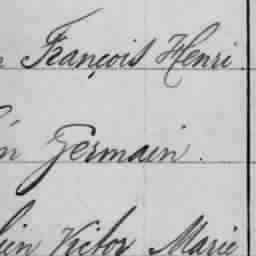 François Henri
Germain.
Victor Marie